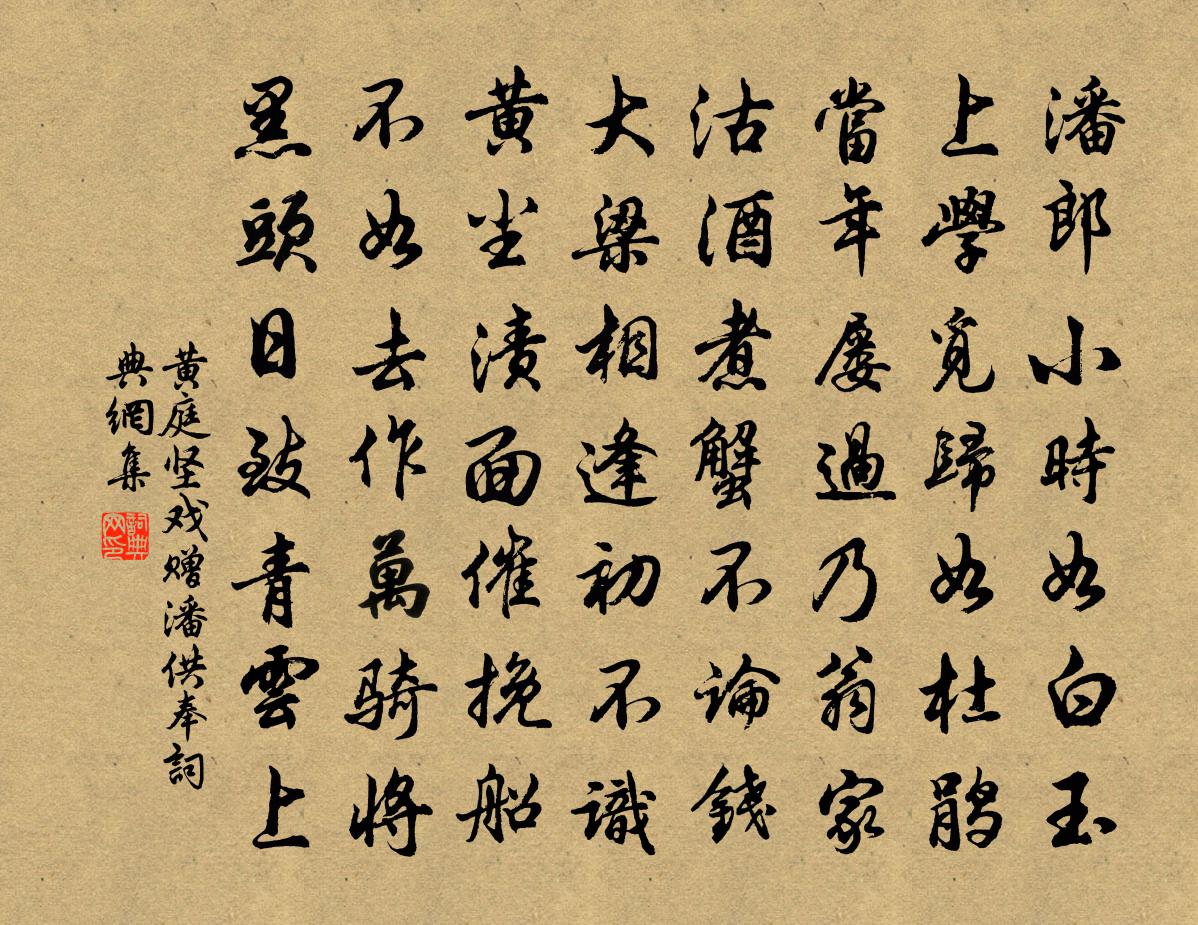 潘郎小時如白玉
上學覓歸如杜鵑
當年屡過乃翁家
沽酒煮蟹不論錢
大梁相逢初不識
黄塵漬面催挽船
不如去作萬騎將
黑頭日致青雲上
黄庭坚戏赠潘供奉詞
典網集
詞典
网印